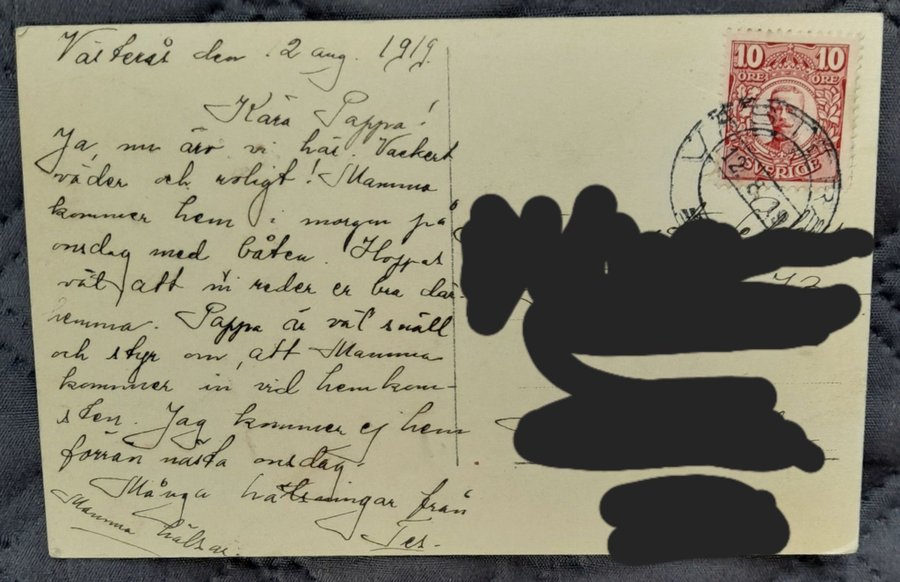 Västerås den 12 aug. 1919.
Kära Pappa!
Ja, nu äro vi här. Vackert
väder och roligt! Mamma
kommer hem i morgon på
onsdag med båten. Hoppas
väl att ni reder er bra där
hemma. Pappa är väl snäll
och styr om, att Mamma
kommer in vid hemkom-
sten. Jag kommer ej hem
förrän nästa onsdag.
Många hälsningar från
Tes.
Mamma hälsar.
10 10
ÖRE ÖRE
SVERIGE